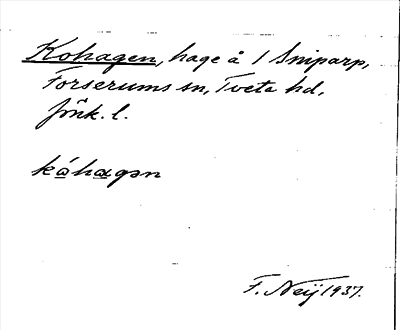 Kohagen, hage å 1 Sniparp,
Forserums sn, Tveta hd,
Jönk. l.
káhagən
F. Neij 1937.